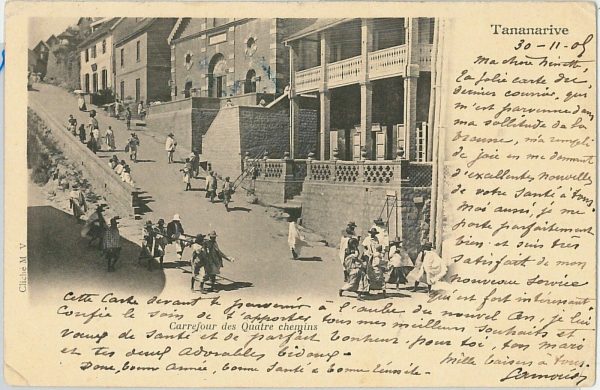 Tananarive
30-11-05
Ma chère Ninette,
La jolie carte du
dernier courrier, qui
m'est parvenue dans
ma solitude de la
brousse, m'a rempli
de joie en me donnant
d'excellentes nouvelles
de votre santé à tous.
Moi aussi, je me
porte parfaitement
bien et suis très
satisfait de mon
nouveau service
qui est fort intéressant
Cette Carte devant te parvenir à l'aube du nouvel An, je lui
Confie le soin de t'apporter tous mes meilleurs souhaits et
voeux de santé et de parfait bonheur pour toi, ton mari
et tes deux adorables
Donc, bonne année, bonne santé & bonne réussite.
Mille baisers à tous.
Carrefour des Quatre chemins
Cliché M V